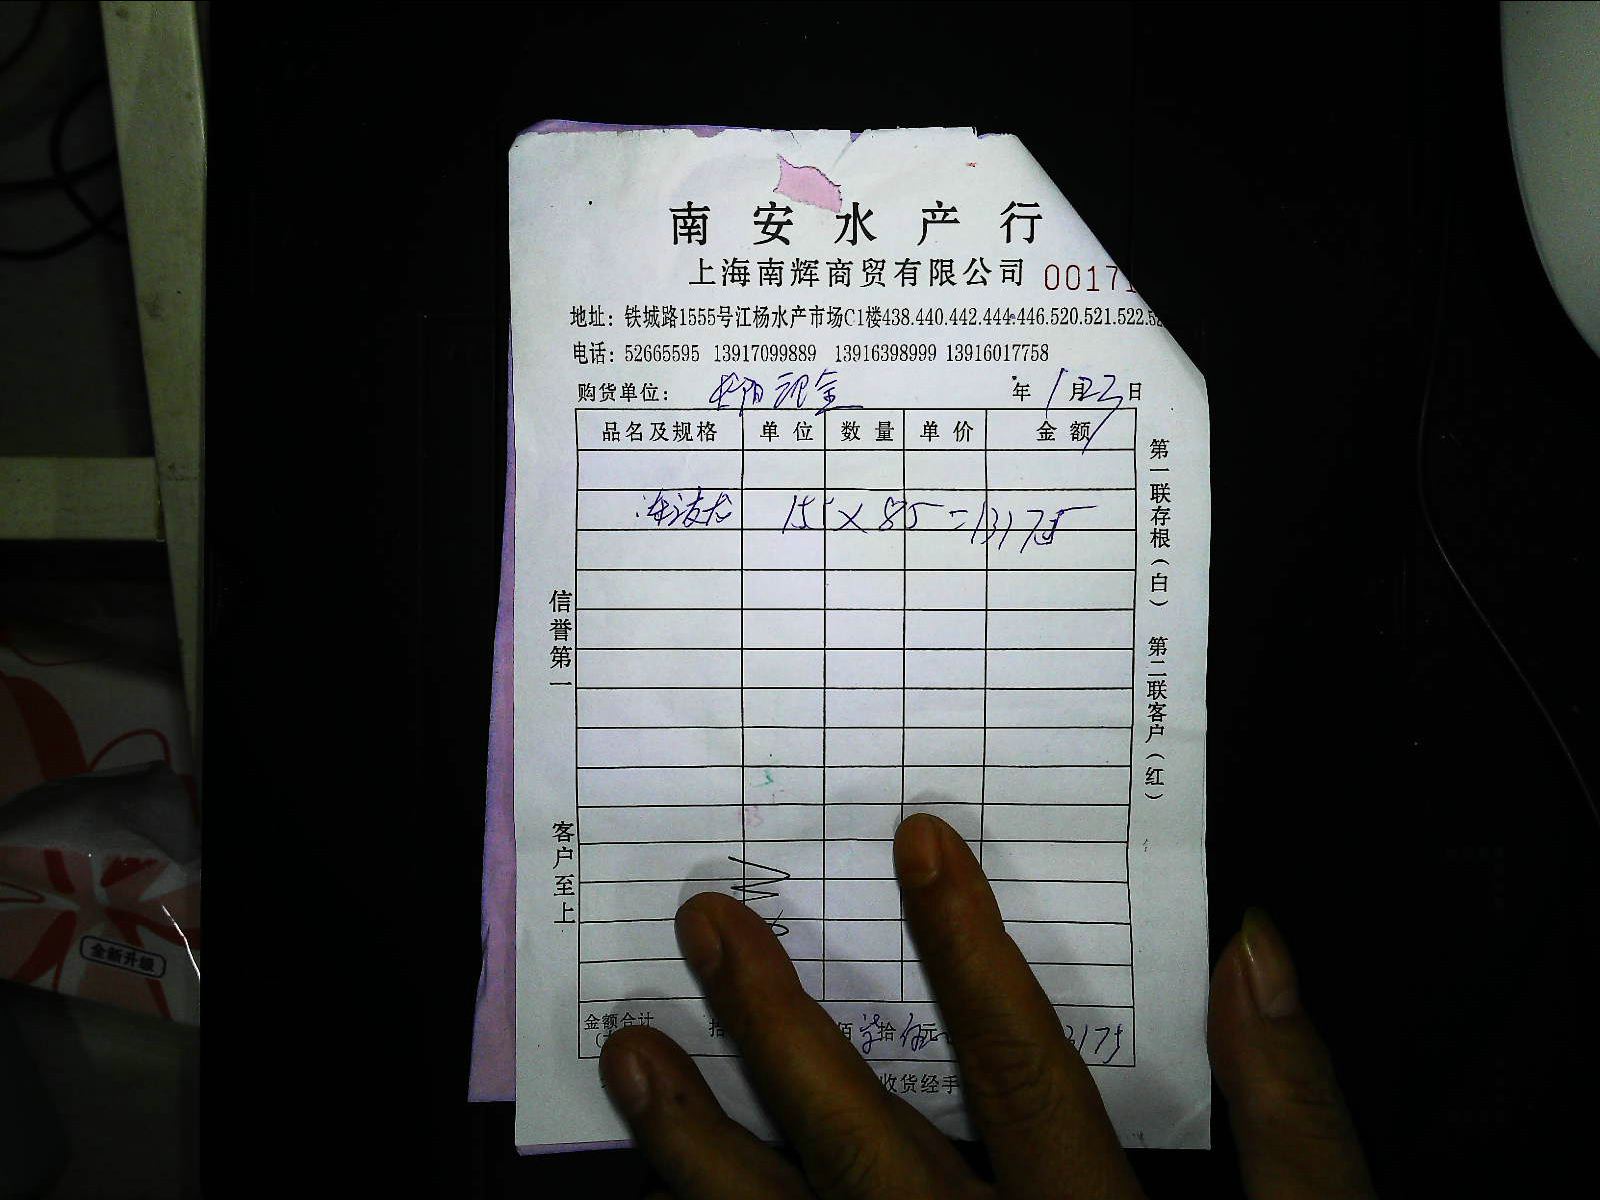 南安水产行
上海南辉商贸有限公司 00171
地址：铁城路1555号江杨水产市场C1楼438.440.442.444.446.520.521.522.52
电话：52665595 13917099889 13916398999 13916017758
购货单位： 现金 年 1月23日
品名及规格 单位 数量 单价 金额
155×85=13175
信誉第一
客户至上
第一联存根（白） 第二联客户（红）
金额合计 拾 佰 柒拾伍元 3175
收货经手
全新升级